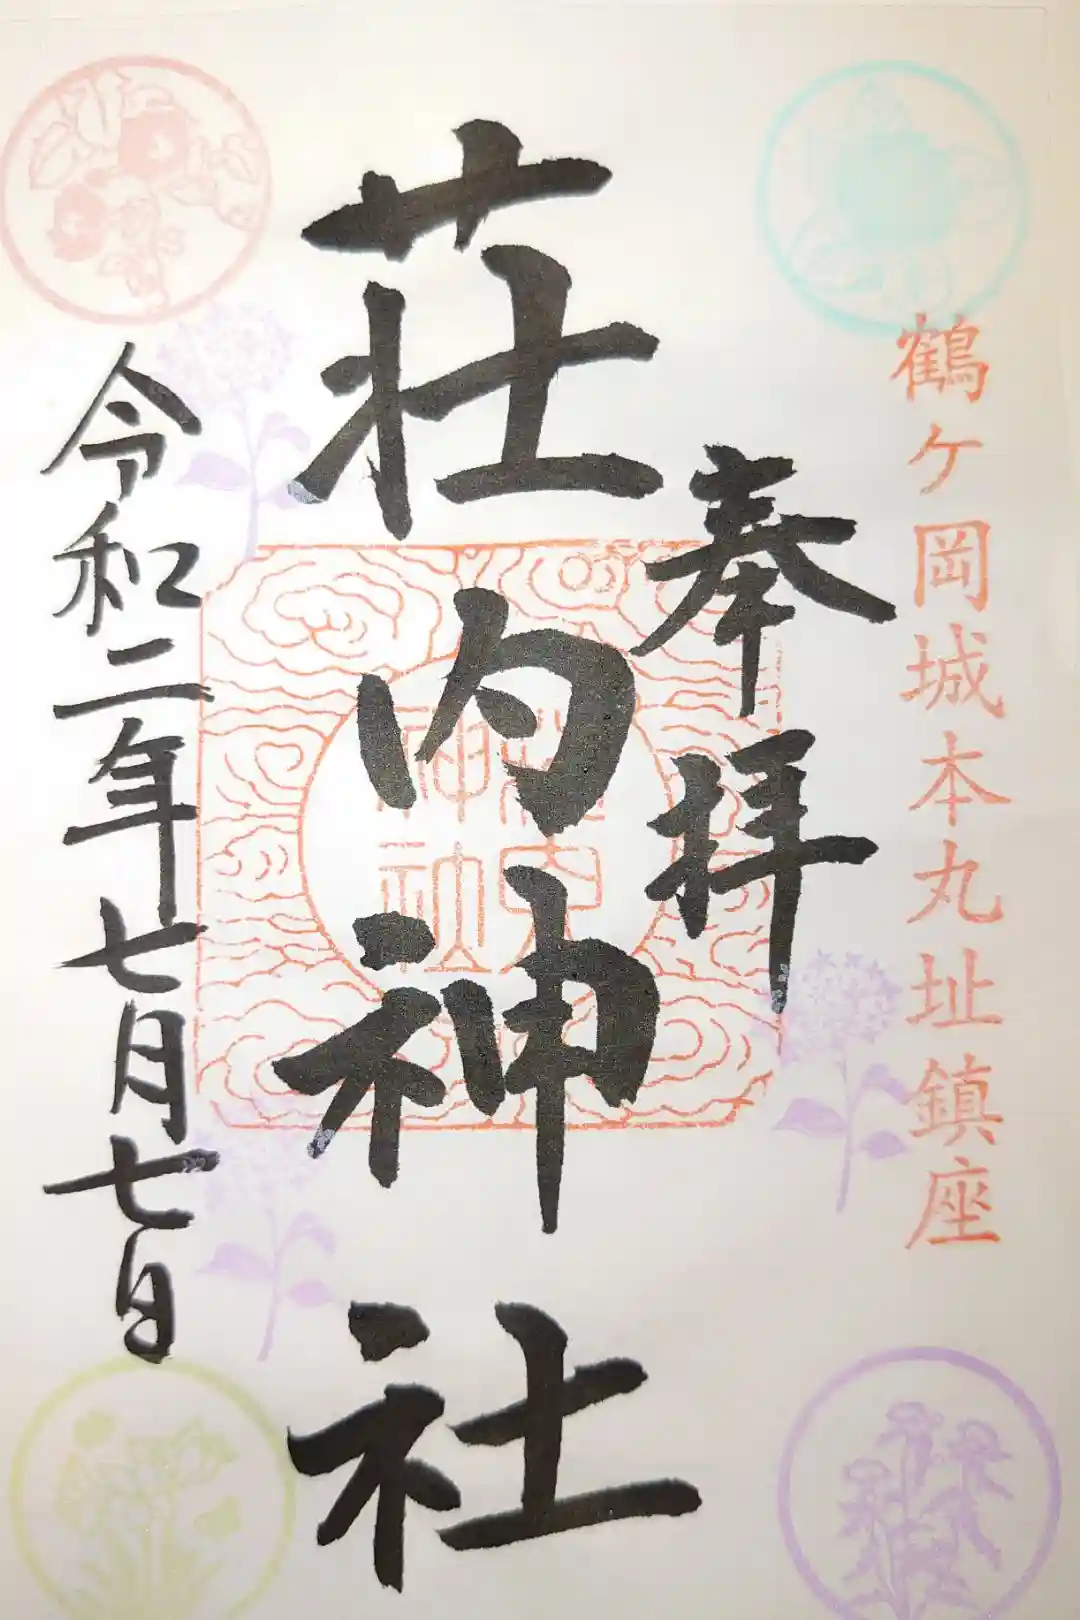 鶴ヶ岡城本丸址鎮座
奉拝
荘内神社
令和二年七月七日
荘内
神社